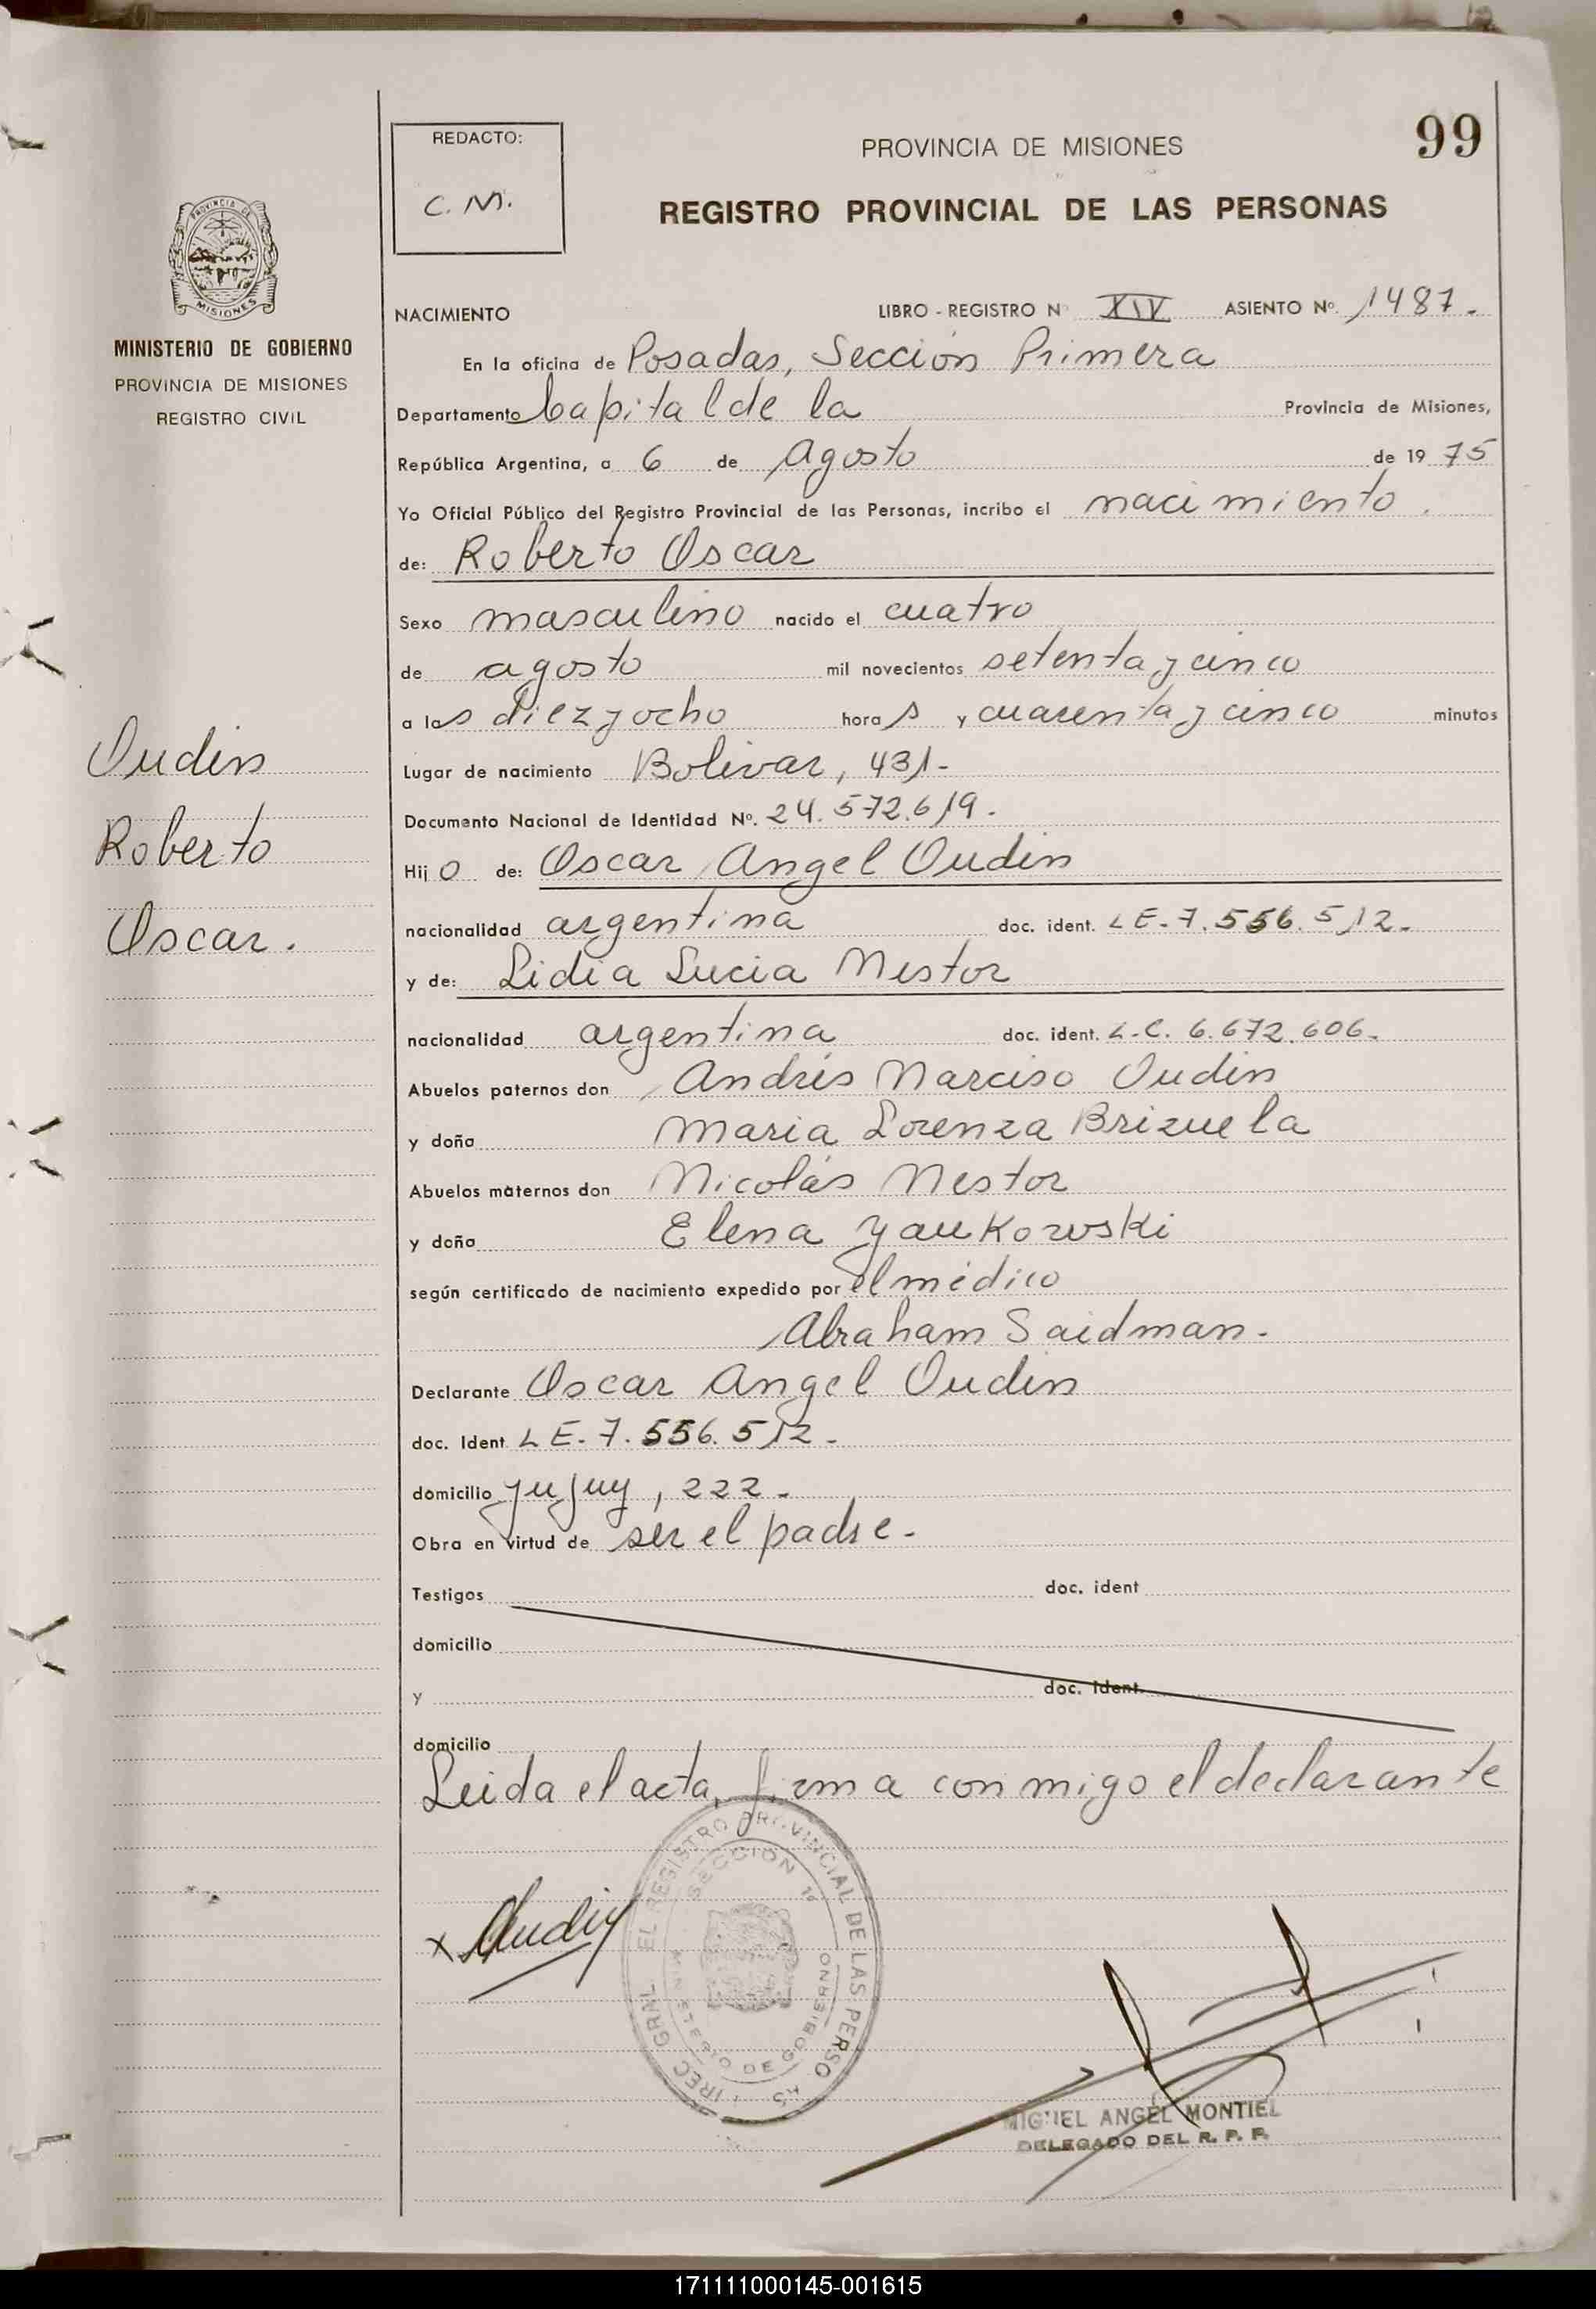 REDACTO:
C. M.
PROVINCIA DE MISIONES
99
REGISTRO PROVINCIAL DE LAS PERSONAS
PROVINCIA DE
MISIONES
MINISTERIO DE GOBIERNO
PROVINCIA DE MISIONES
REGISTRO CIVIL
NACIMIENTO LIBRO - REGISTRO Nº XIV ASIENTO Nº. 1487.
En la oficina de Posadas, Sección Primera
Departamento Capital de la Provincia de Misiones,
República Argentina, a 6 de Agosto de 19 75
Yo Oficial Público del Registro Provincial de las Personas, incribo el nacimiento.
de: Roberto Oscar
Sexo masculino nacido el cuatro
de agosto mil novecientos setenta y cinco
a las diez y ocho horas y cuarenta y cinco minutos
Lugar de nacimiento Bolivar, 431-
Documento Nacional de Identidad Nº. 24.572.619.
Hijo de: Oscar Angel Oudin
nacionalidad argentina doc. ident. L E. 7.556.512.
y de: Lidia Lucia Nestor
nacionalidad argentina doc. ident. L.C. 6.672.606.
Abuelos paternos don Andrés Narciso Oudin
y doña Maria Lorenza Brizuela
Abuelos maternos don Nicolás Nestor
y doña Elena Yaukowski
según certificado de nacimiento expedido por el médico
Abraham Saidman.
Declarante Oscar Angel Oudin
doc. Ident L E. 7.556.512.
domicilio Jujuy, 222.
Obra en virtud de ser el padre.
Testigos doc. ident
domicilio
y doc. Ident.
domicilio
Leida el acta, firma conmigo el declarante
Oudin
Roberto
Oscar.
x Oudin
EL REGISTRO PROVINCIAL DE LAS PERSO
SECCION 1ª
DE GOBIERNO
MIGUEL ANGEL MONTIEL
DELEGADO DEL R. P. P.
171111000145-001615